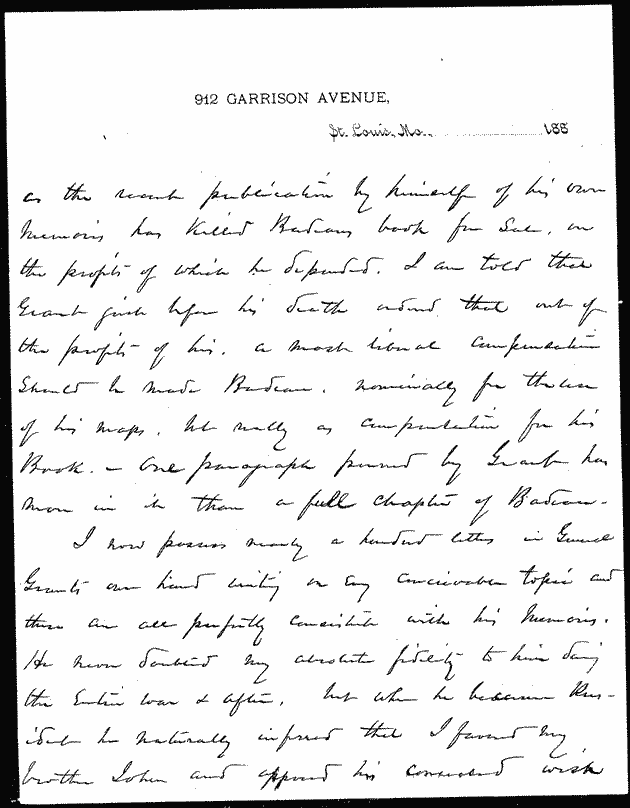 912 GARRISON AVENUE,
St. Louis, Mo., 188
as the recent publication by himself of his own
Memoirs has Killed Badeaus book for Sale, on
the profits of which he depended. I am told that
Grant just before his death ordered that out of
the profits of his, a most liberal compensation
Should be made Badeau, nominally for the use
of his maps, but really as compensation for his
Book. – One paragraph penned by Grant has
more in it than a full chapter of Badeau –
I now possess nearly a hundred letters in General
Grants own hand writing on every conceivable topic and
these are all perfectly consistent with his Memoirs.
He never doubted my absolute fidelity to him during
the Entire war & after, but when he became Pres-
ident he naturally inferred that I favored my
brother John and opposed his wish